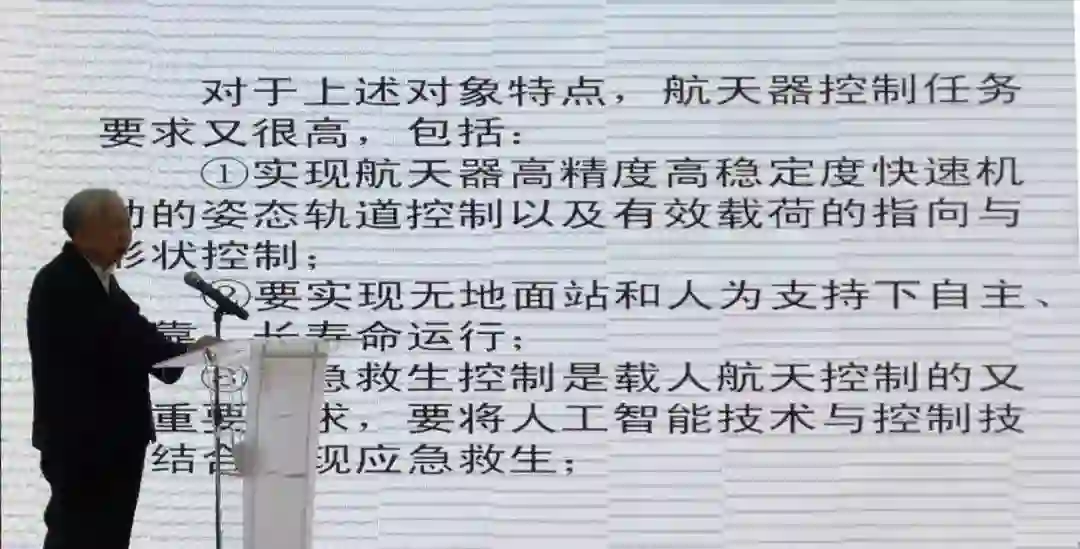 对于上述对象特点，航天器控制任务
要求又很高，包括：
①实现航天器高精度高稳定度快速机
动的姿态轨道控制以及有效载荷的指向与
形状控制；
②要实现无地面站和人为支持下自主、
靠 长寿命运行；
③ 急救生控制是载人航天控制的又
重要 求，要将人工智能技术与控制技
结合 现应急救生；